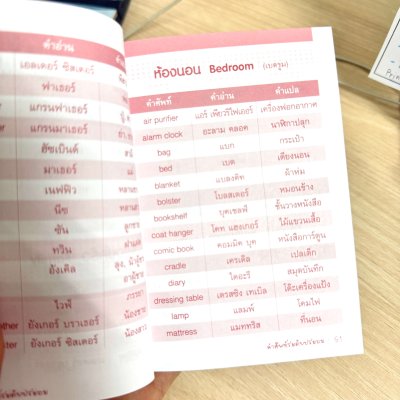 คำอ่าน
เอลเดอร์ ซิสเตอร์
ฟาเธอร์
แกรนฟาเธอร์
แกรนมาเธอร์
ฮัซเบินด์
มาเธอร์
เนฟฟิว
นีซ
ซัน
ทวิน
อังเคิล
ไวฟ์
ยังเกอร์ บราเธอร์
ยังเกอร์ ซิสเตอร์
หลานสา
ลูกชาย
ฝาแฝด
ลุง, น้าชาย
อาผู้ชาย
ภรรยา
น้องชาย
น้องสาว
ห้องนอน Bedroom (เบดรูม)
คำศัพท์ คำอ่าน คำแปล
air purifier แอร์ เพียวริไฟเออร์ เครื่องฟอกอากาศ
alarm clock อะลาม คลอค นาฬิกาปลุก
bag แบก กระเป๋า
bed เบด เตียงนอน
blanket แบลงคิท ผ้าห่ม
bolster โบลสเตอร์ หมอนข้าง
bookshelf บุคเชลฟ์ ชั้นวางหนังสือ
coat hanger โคท แฮงเกอร์ ไม้แขวนเสื้อ
comic book คอมมิค บุค หนังสือการ์ตูน
cradle เครเดิ้ล เปลเด็ก
diary ไดอะรี สมุดบันทึก
dressing table เดรสซิง เทเบิล โต๊ะเครื่องแป้ง
lamp แลมพ์ โคมไฟ
mattress แมททริส ที่นอน
51